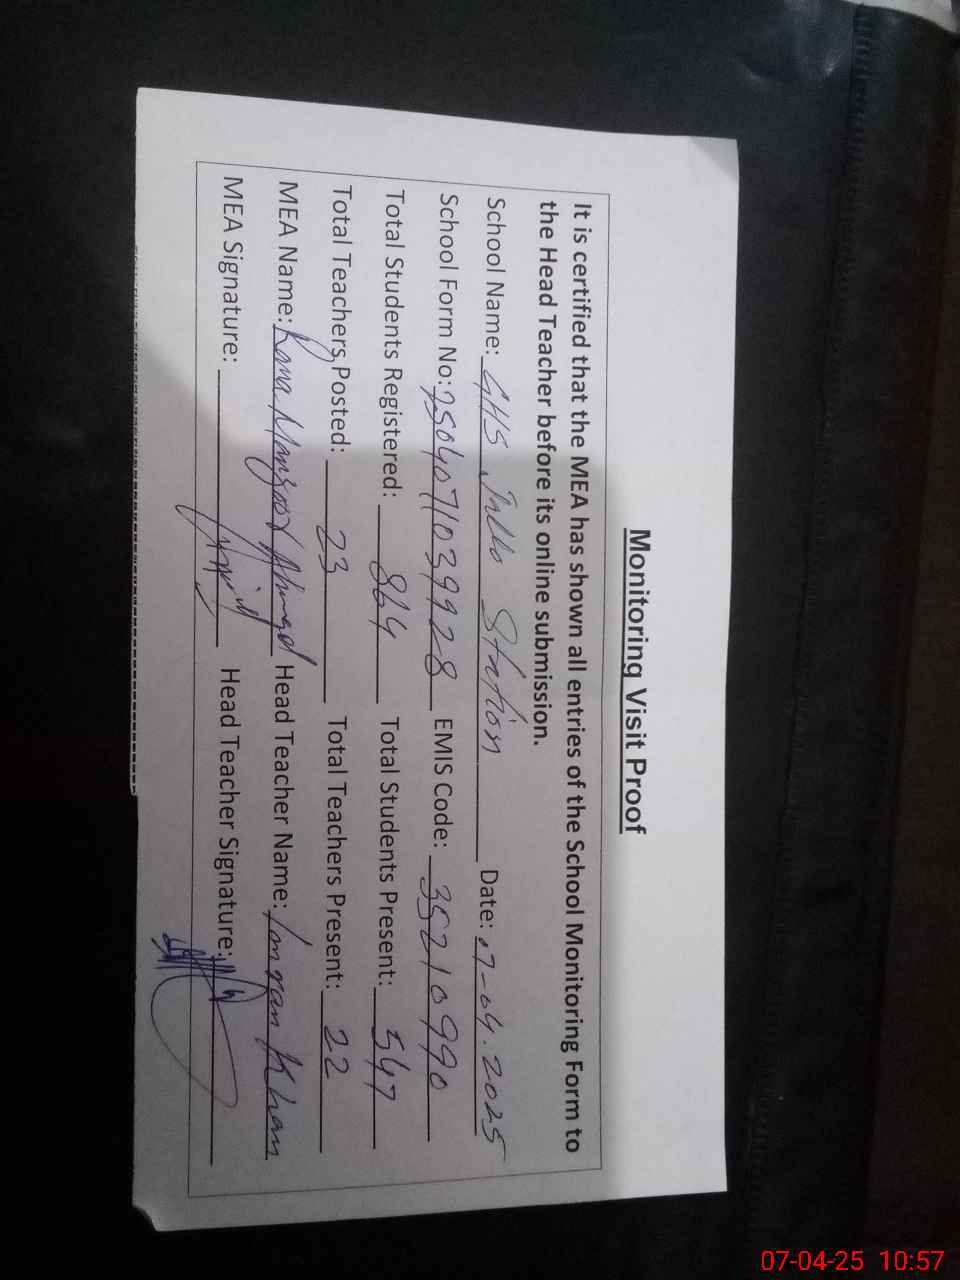 Monitoring Visit Proof
It is certified that the MEA has shown all entries of the School Monitoring Form to
the Head Teacher before its online submission.
School Name: GHS Jallo Station Date: 07-04.2025
School Form No: 250407103992 8 EMIS Code: 35210990
Total Students Registered: 864 Total Students Present: 547
Total Teachers Posted: 23 Total Teachers Present: 22
MEA Name: Rana Manzoor Ahmed Head Teacher Name: Imran Khan
MEA Signature: Head Teacher Signature:
07-04-25 10:57